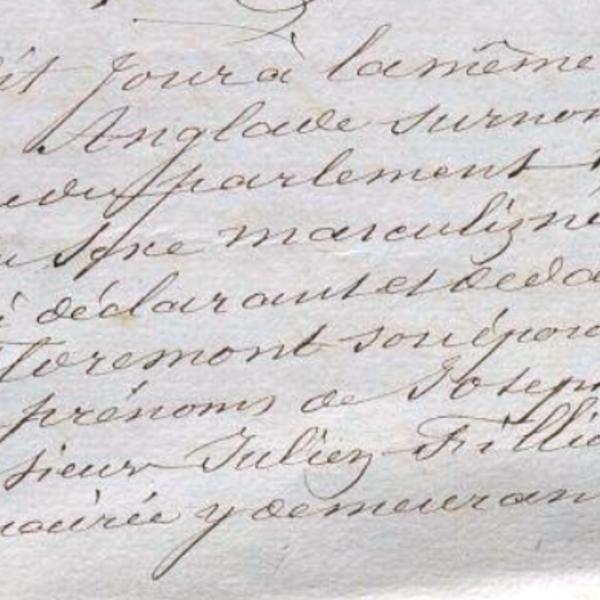 dit jour à la même
Anglade surnom
rue du parlement
du sexe masculin né
déclarant et de da
Floremont son épou
prénoms de Joseph
sieur Julien Fillio
mairie y demeuran